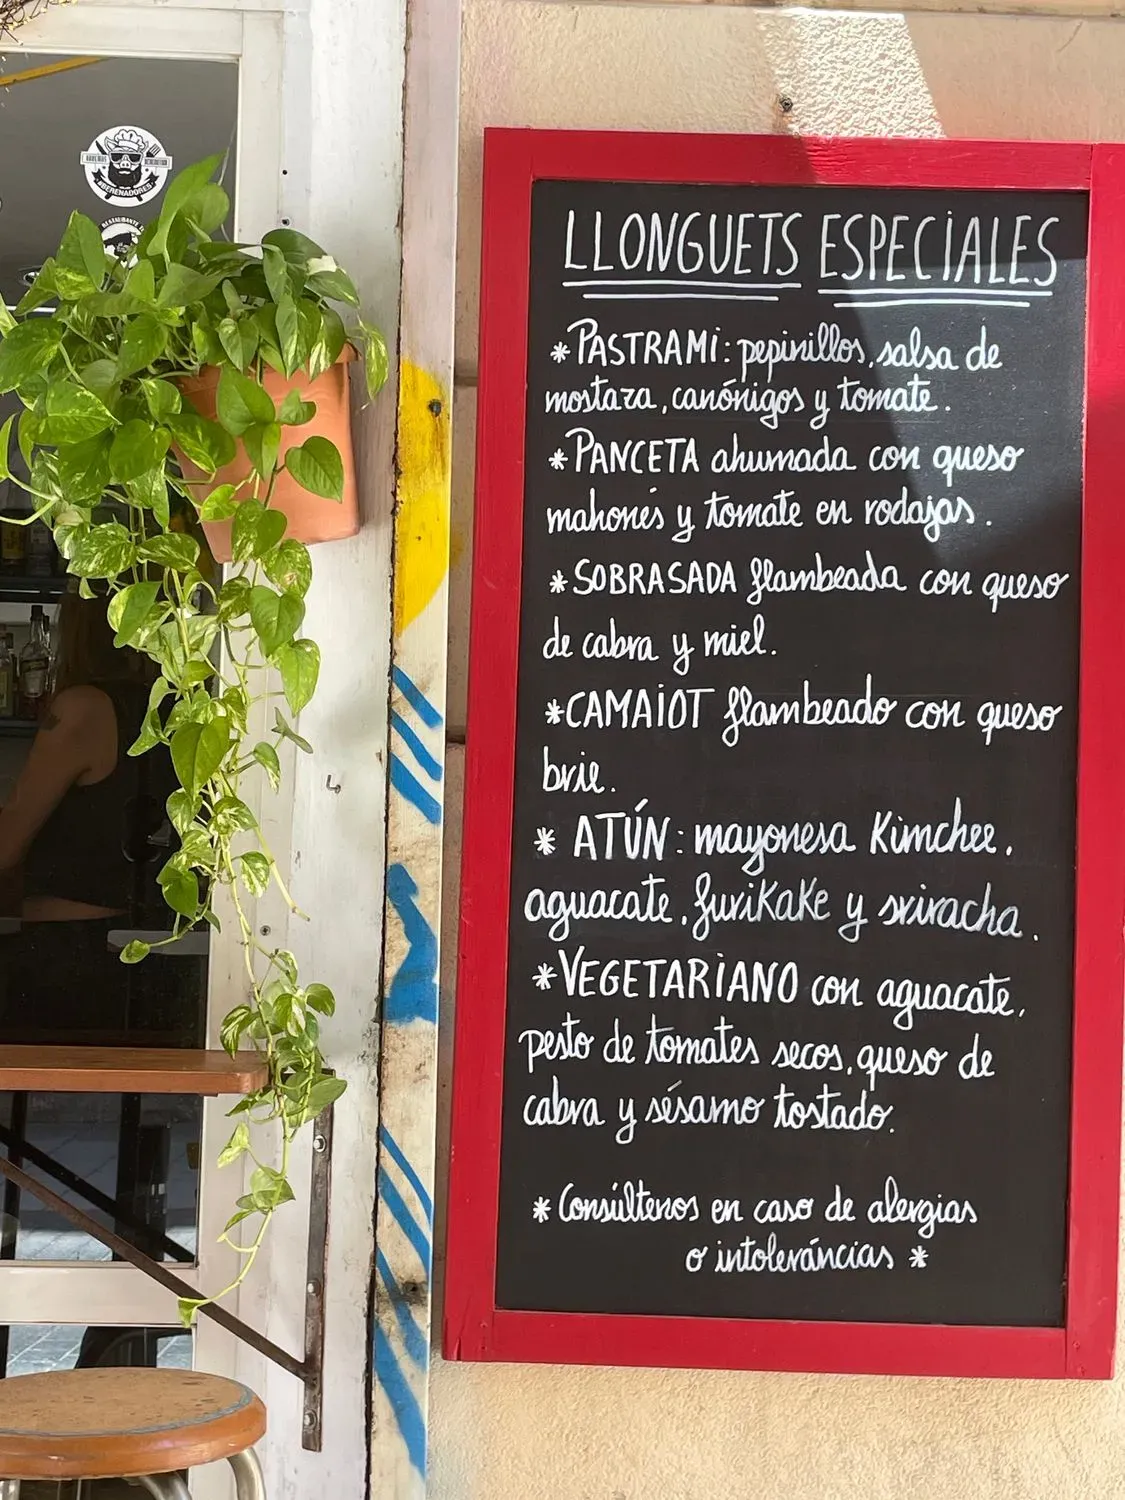 LLONGUETS ESPECIALES
*PASTRAMI: pepinillos, salsa de
mostaza, canónigos y tomate.
*PANCETA ahumada con queso
mahonés y tomate en rodajas.
*SOBRASADA flambeada con queso
de cabra y miel.
*CAMAIOT flambeado con queso
brie.
* ATÚN: mayonesa Kimchee,
aguacate, furikake y sriracha.
*VEGETARIANO con aguacate,
pesto de tomates secos, queso de
cabra y sésamo tostado.
* Consúltenos en caso de alergias
o intoleráncias *
RESTAURANTE